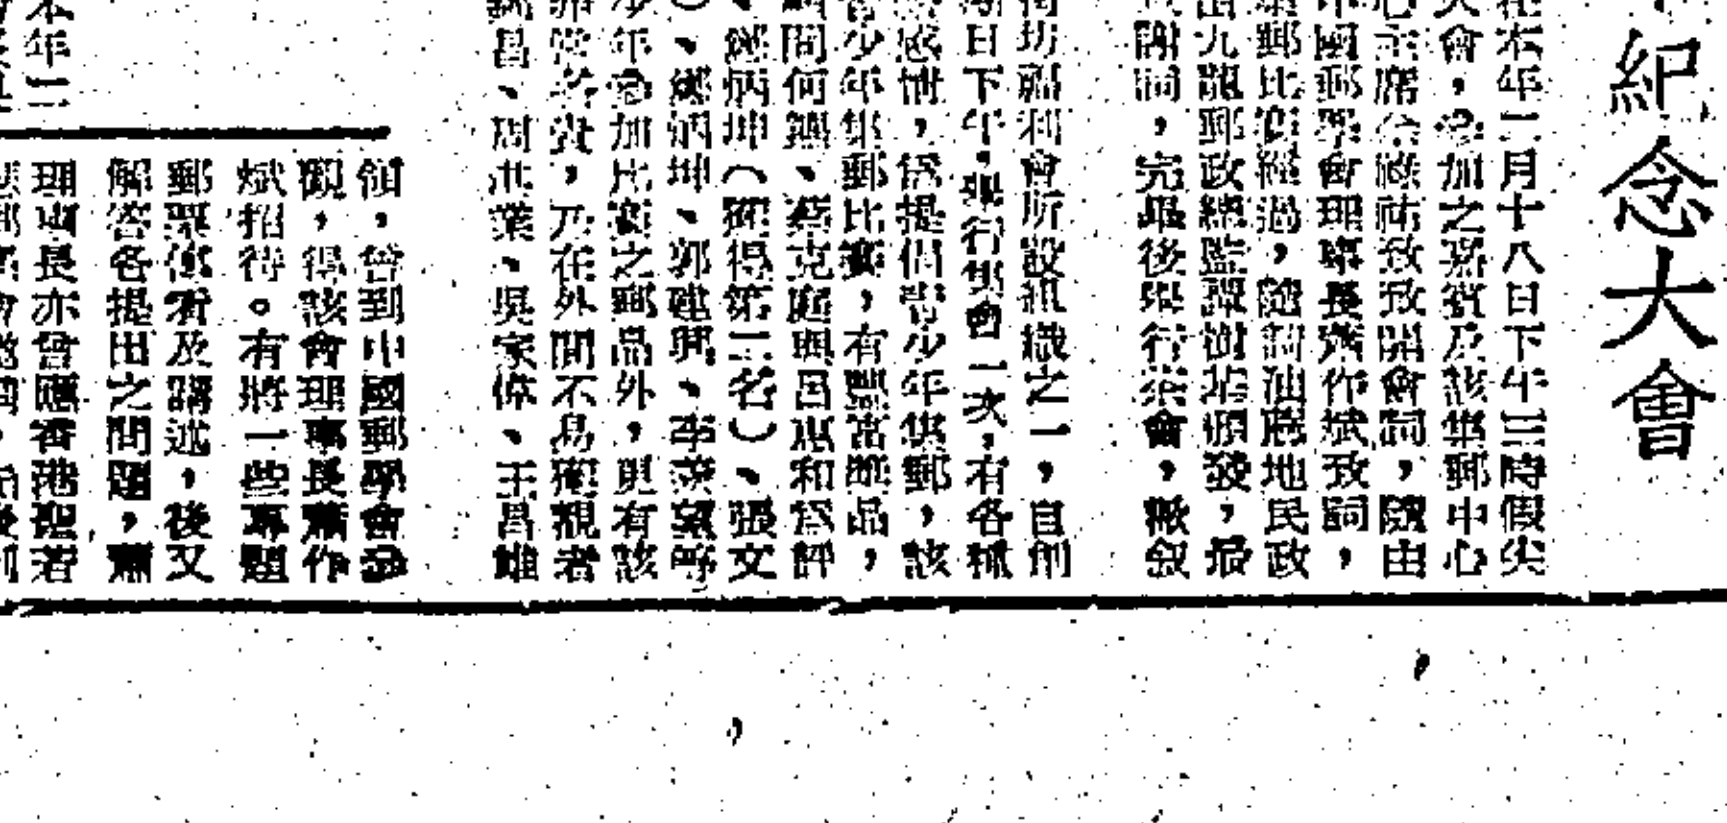 紀念大會
在本年二月十八日下午三時假尖
大會，參加之嘉賓及該集郵中心
心主席余祿祐致致開會詞，隨由
中國郵學會理事長蕭作斌致詞，
集郵比賽經過，隨請油蔴地民政
由九龍郵政總監譚樹基頒發，最
謝詞，完畢後舉行茶會，歡敘
街坊福利會所設組織之一，自創
期日下午，舉行集會一次，有各種
感情，為提倡青少年集郵，該
青少年集郵比賽，有豐富獎品，
顧問何興、蔡克庭與呂惠和為評
、鍾炳坤（獲得第二名）、張文
）、鄭炳坤、郭建興、李
少年參加比賽之郵品外，更有該
非常名貴，乃在外間不易獲觀者
昌、周洪業、吳家偉、王昌雄
領，曾到中國郵學會參
觀，得該會理事長蕭作
斌招待。有將一些專題
郵票傳看及講述，後又
解答各提出之問題，蕭
理事長亦曾應香港聖若
本年二